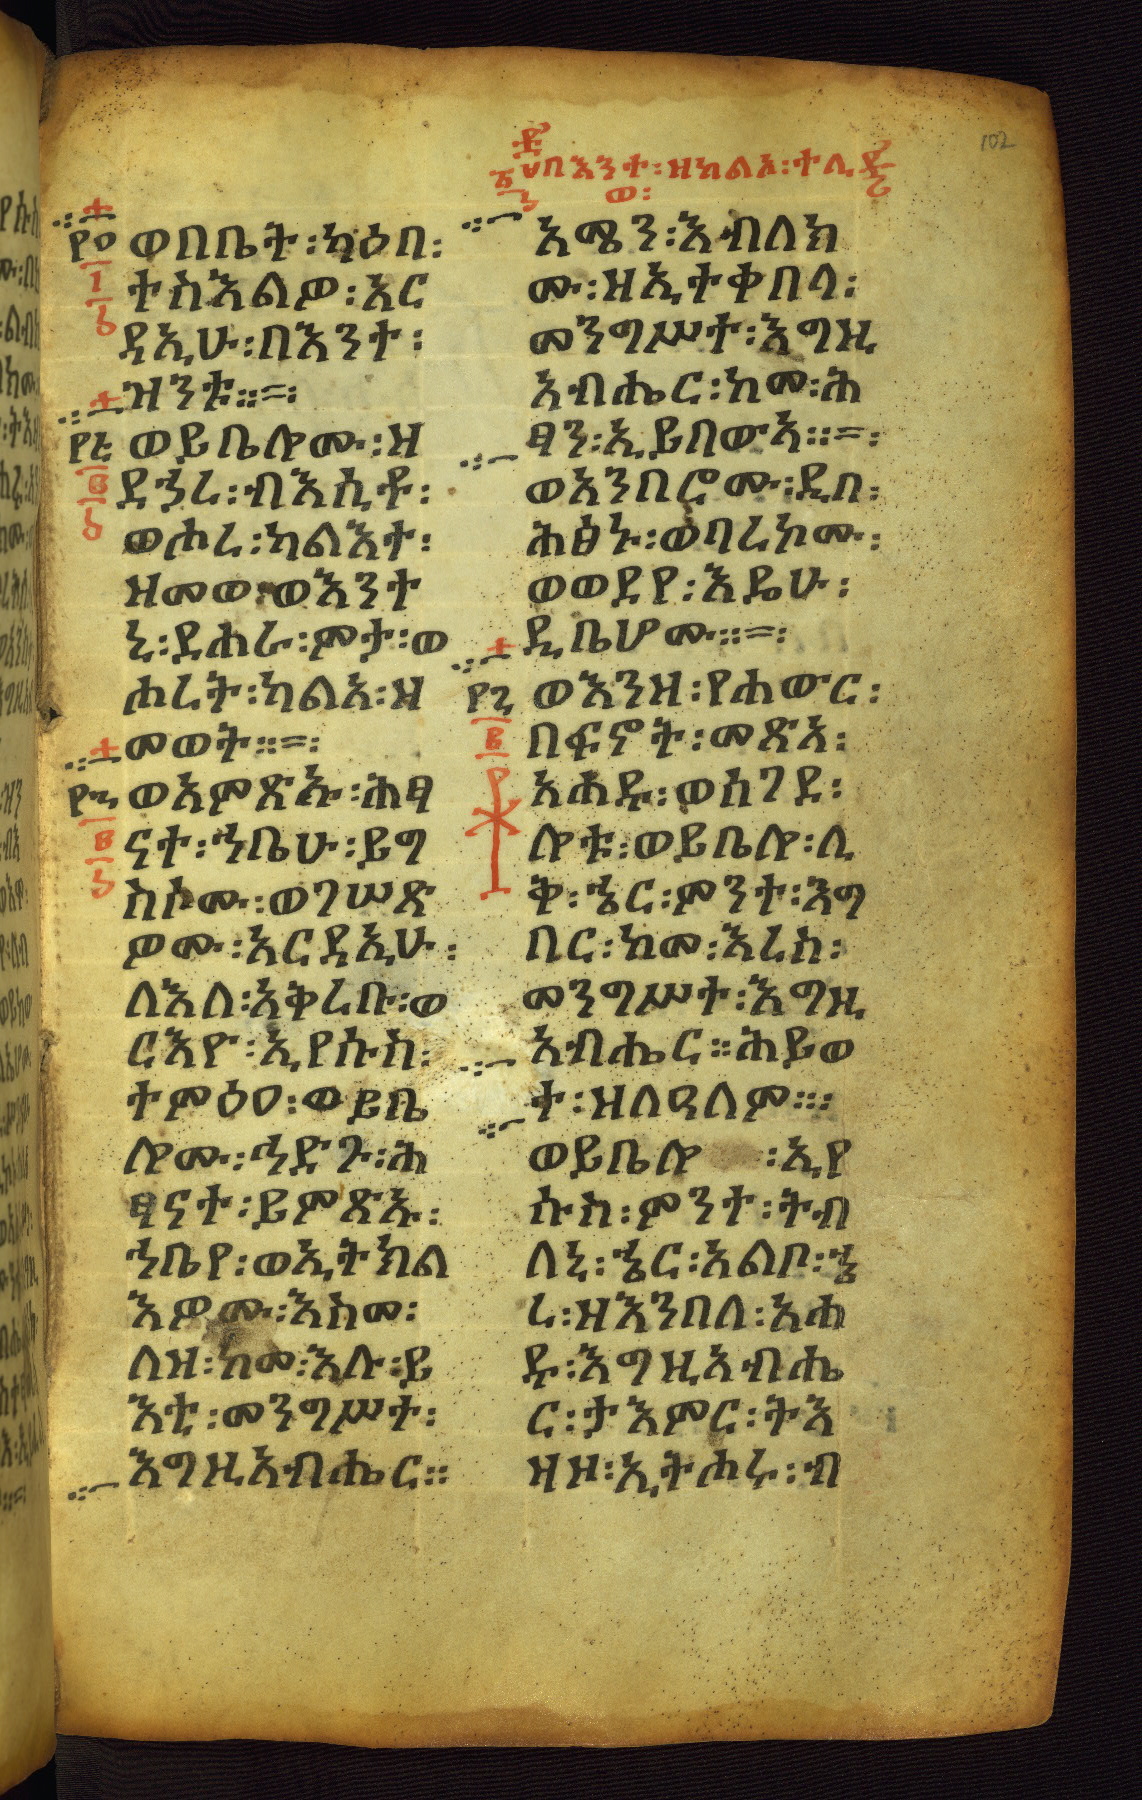 102
በእንተ፡ ዝከልአ፡ ተሊ
ወ፡
ወበቤት፡ ካዕበ፡
ተስእልዎ፡ አር
ዳኢሁ፡ በእንተ፡
ዝንቱ።
ወይቤሎሙ፡ ዘ
ደኀረ፡ ብእሲቶ፡
ወሖረ፡ ካልእተ፡
ዘመወ፡ ወእንተ
ኒ፡ ደሐራ፡ ምታ፡ ወ
ሖረት፡ ካልአ፡ ዘ
መወት።
ወአምጽኡ፡ ሕፃ
ናተ፡ ኀቤሁ፡ ይግ
ስሶሙ፡ ወገሠጽ
ዎሙ፡ አርዳኢሁ፡
ለእለ፡ አቅረቡ፡ ወ
ርእዮ፡ ኢየሱስ፡
ተምዕዐ፡ ወይቤ
ሎሙ፡ ኀድጉ፡ ሕ
ፃናተ፡ ይምጽኡ፡
ኀቤየ፡ ወኢትክል
እዎሙ፡ እስመ፡
ለዝ፡ ከመ፡ እሉ፡ ይ
እቲ፡ መንግሥተ፡
እግዚአብሔር።
አሜን፡ እብለክ
ሙ፡ ዘኢተቀበላ፡
መንግሥተ፡ እግዚ
አብሔር፡ ከመ፡ ሕ
ፃን፡ ኢይበውኣ።
ወአንበሮሙ፡ ዲበ፡
ሕፅኑ፡ ወባረኮሙ፡
ወወደየ፡ እዴሁ፡
ዲቤሆሙ።
ወእንዘ፡ የሐውር፡
በፍኖት፡ መጽአ፡
አሐዱ፡ ወሰገደ፡
ሎቱ፡ ወይቤሎ፡ ሊ
ቅ፡ ኄር፡ ምንተ፡ እግ
በር፡ ከመ፡ እረስ፡
መንግሥተ፡ እግዚ
አብሔር። ሕይወ
ት፡ ዘለዓለም።
ወይቤሎ ፡ ኢየ
ሱስ፡ ምንተ፡ ትብ
ለኒ፡ ኄር፡ አልቦ፡ ኄ
ረ፡ ዘእንበለ፡ አሐ
ዱ፡ እግዚአብሔ
ር፡ ታእምር፡ ትእ
ዛዘ፡ ኢትሖር፡ ብ